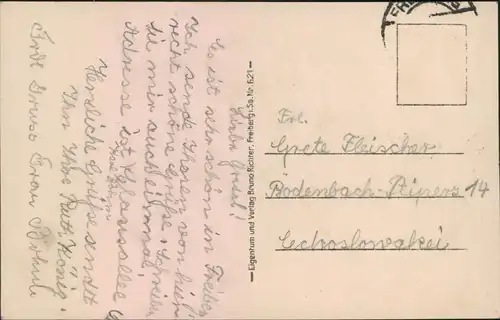 Liebe Gretel!
Es ist sehr schön in Freiberg
Ich sende Ihnen von hier
recht schöne Grüße. Schreiben
Sie mir auch einmal.
Adresse ist
Herzliche Grüße sendet
Ihnen Ihre Ruth König.
Frau
Eigentum und Verlag Bruno Richter, Freiberg i. Sa. Nr. 621
Frl.
Grete Fleischer
Bodenbach-Pipers 14
Cechoslowakei